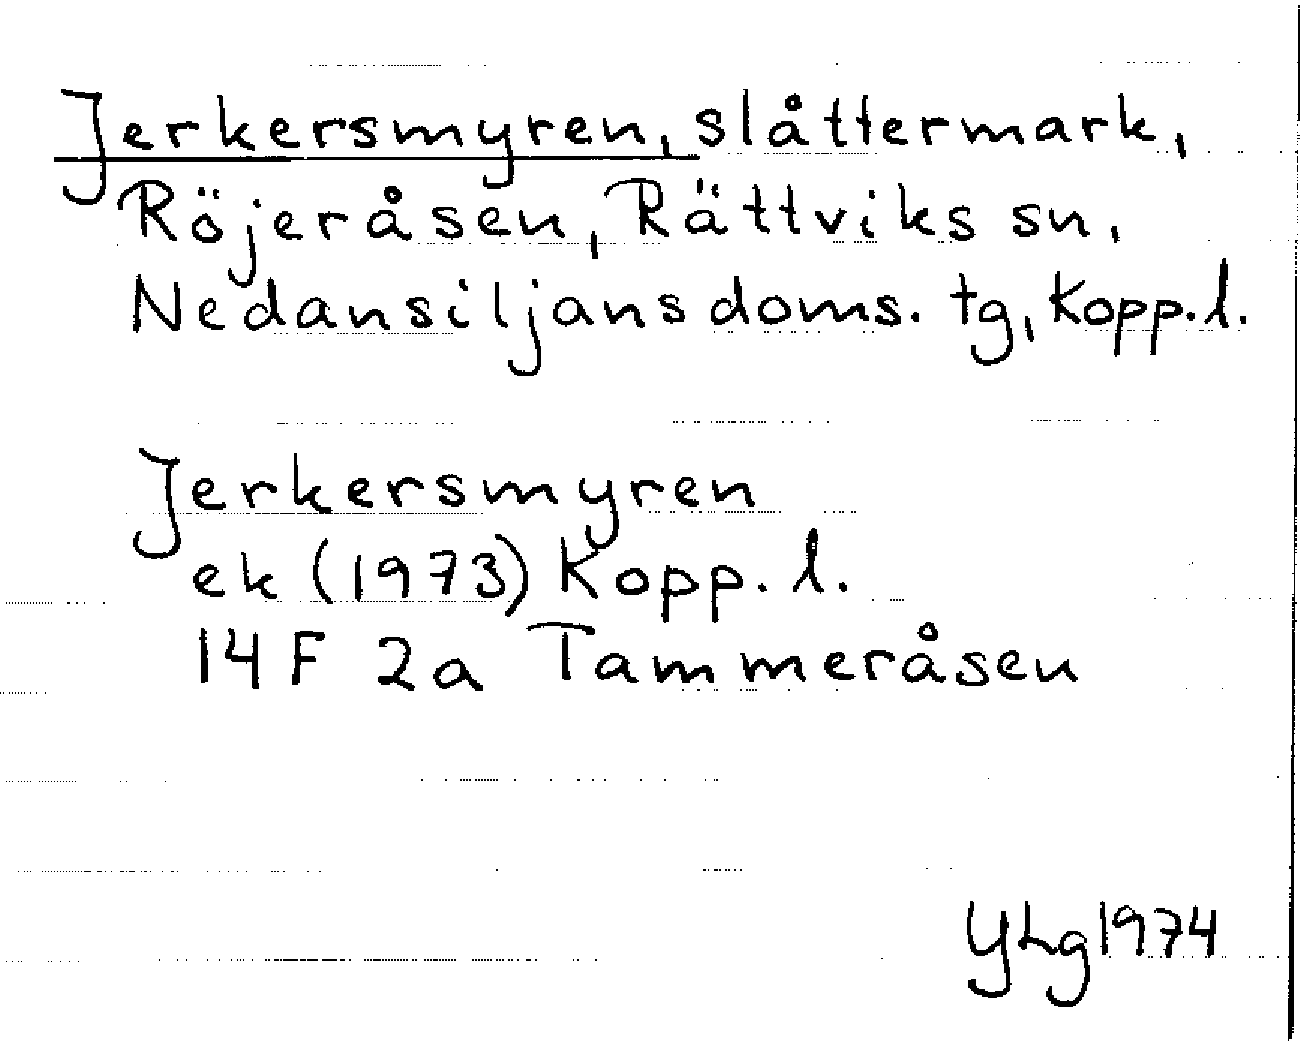 Jerkersmyren, slåttermark,
Röjeråsen, Rättviks sn,
Nedansiljans doms. tg, Kopp. l.
Jerkersmyren
ek (1973) Kopp. l.
14 F 2a Tammeråsen
YLg 1974